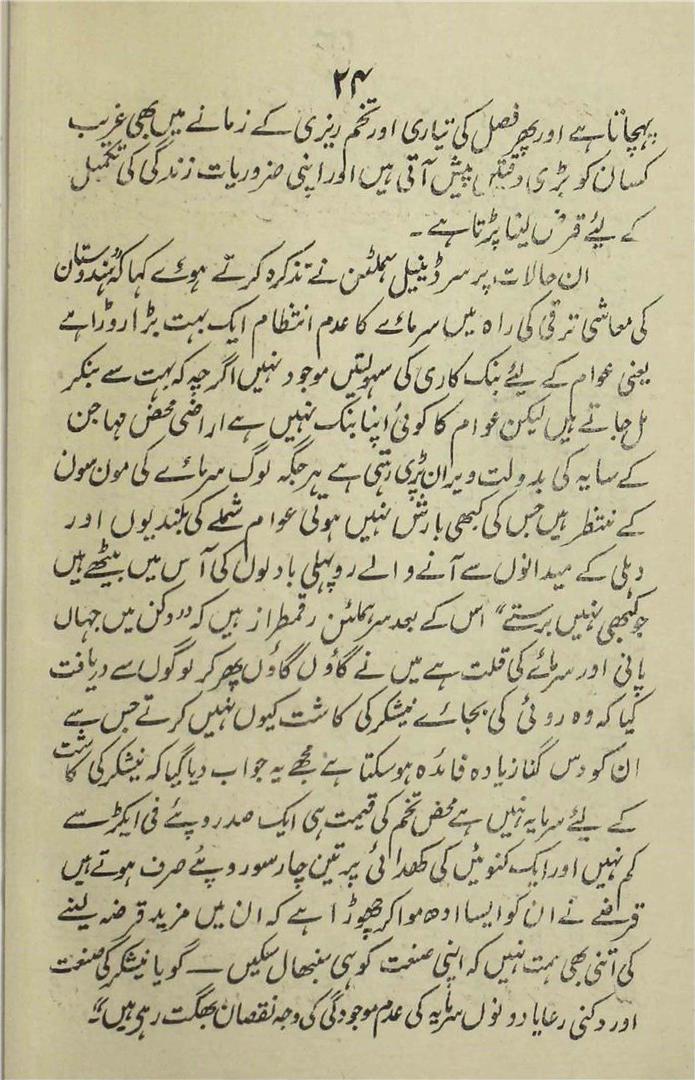 ۲۴
پہچاتا ہے اور پھر فصل کی تیاری اور تخم ریزی کے زمانے میں بھی غریب
کسان کو بڑی دقتیں پیش آتی ہیں اور اپنی ضروریات زندگی کی تکمیل
کے لیئے قرض لینا پڑتا ہے۔
ان حالات پر سر ڈینیل ہملٹن نے تذکرہ کرتے ہوئے کہا کہ "ہندوستان
کی معاشی ترقی کی راہ میں سرمائے کا عدم انتظام ایک بہت بڑا روڑا ہے
یعنی عوام کے لیئے بنک کاری کی سہولتیں موجود نہیں اگرچہ کہ بہت سے بنکر
مل جاتے ہیں لیکن عوام کا کوئی اپنا بنک نہیں ہے اراضی محض مہاجن
کے سایہ کی بدولت ویران پڑی رہتی ہے ہر جگہ لوگ سرمائے کی مون سون
کے منتظر ہیں جس کی کبھی بارش نہیں ہوتی عوام شملے کی بلندیوں اور
دہلی کے میدانوں سے آنے والے روپہلی بادلوں کی آس میں بیٹھے ہیں
جو کبھی نہیں برستے" اس کے بعد سر ہملٹن رقمطراز ہیں کہ "دکن میں جہاں
پانی اور سرمائے کی قلت ہے میں نے گاؤں گاؤں پھر کر لوگوں سے دریافت
کیا کہ وہ روئی کی بجائے نیشکر کی کاشت کیوں نہیں کرتے جس سے
ان کو دس گنا زیادہ فائدہ ہوسکتا ہے مجھے یہ جواب دیا گیا کہ نیشکر کی کاشت
کے لیئے سرمایہ نہیں ہے محض تخم کی قیمت ہی ایک صد روپئے فی ایکڑ سے
کم نہیں اور ایک کنوئیں کی کھدائی پر تین چار سو روپئے صرف ہوتے ہیں
قرضے نے ان کو ایسا ادھ موا کر چھوڑا ہے کہ ان میں مزید قرضہ لینے
کی اتنی بھی ہمت نہیں کہ اپنی صنعت کو ہی سنبھال سکیں — گویا نیشکر کی صنعت
اور دکنی رعایا دونوں سرمایہ کی عدم موجودگی کی وجہ نقصان بھگت رہی ہیں"۔